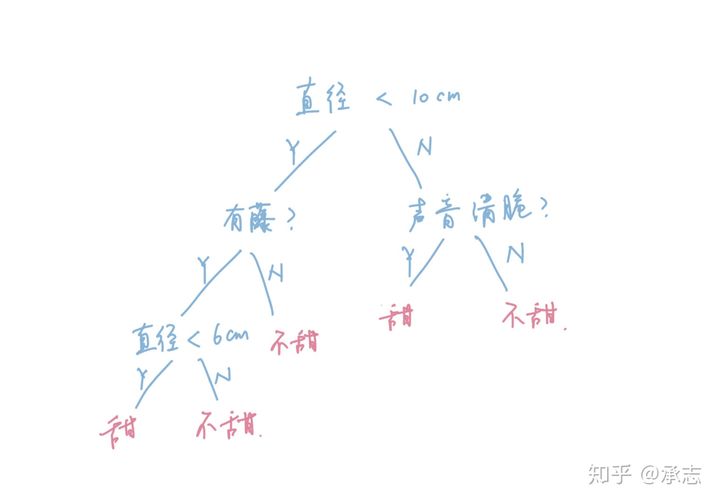 直径 < 10cm
Y
N
有藤?
声音清脆?
Y
N
Y
N
直径 < 6cm
不甜
甜
不甜.
Y
N
甜
不甜.
知乎 @承志